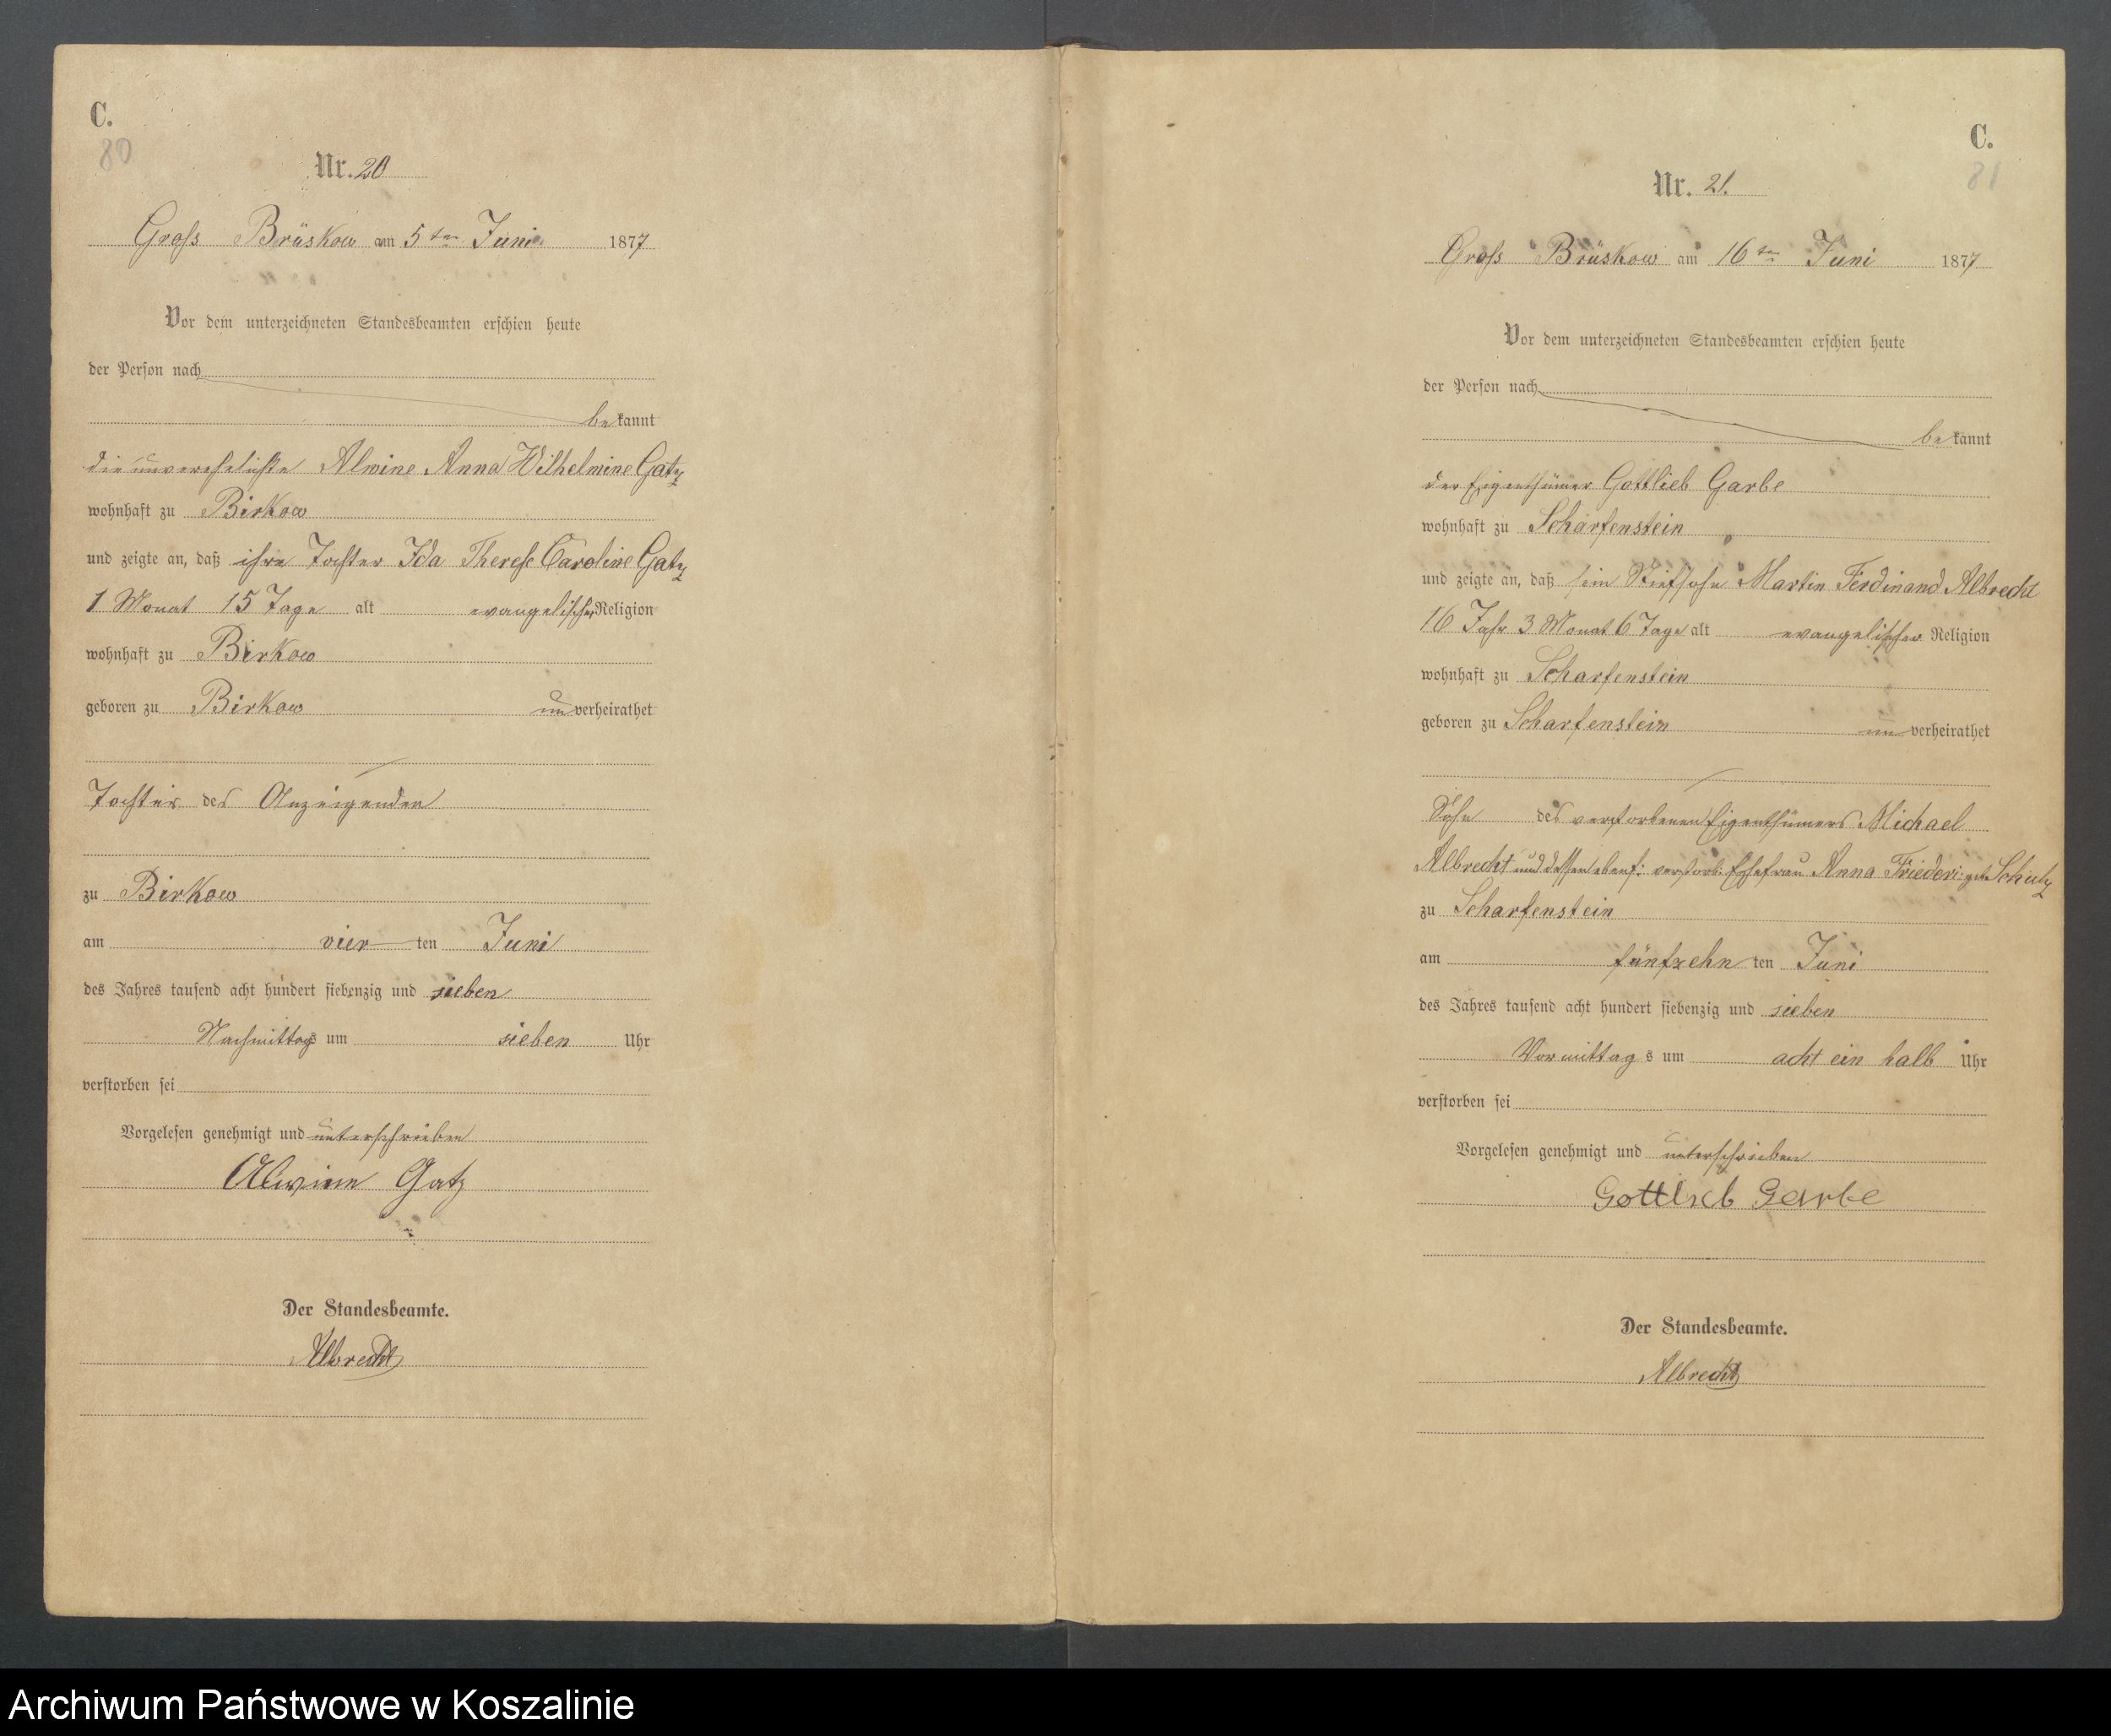 C.
80
Nr. 20
Gross Brüskow am 5ten Juni 1877
Vor dem unterzeichneten Standesbeamten erschien heute
der Person nach
bekannt
die unverehelichte Alwine Anna Wilhelmine Gatz
wohnhaft zu Birkow
und zeigte an, daß ihre Tochter Ida Therese Caroline Gatz
1 Monat 15 Tage alt evangelischer Religion
wohnhaft zu Birkow
geboren zu Birkow unverheirathet
Tochter des Anzeigenden
zu Birkow
am vierten Juni
des Jahres tausend acht hundert siebenzig und sieben
Nachmittags um sieben Uhr
verstorben sei
Vorgelesen genehmigt und unterschrieben
Alwine Gatz
Der Standesbeamte.
Albrecht
C.
81
Nr. 21.
Gross Brüskow am 16ten Juni 1877
Vor dem unterzeichneten Standesbeamten erschien heute
der Person nach
bekannt
der Eigenthümer Gottlieb Garbe
wohnhaft zu Scharfenstein
und zeigte an, daß sein Stiefsohn Martin Ferdinand Albrecht
16 Jahr 3 Monat 6 Tage alt evangelischer Religion
wohnhaft zu Scharfenstein
geboren zu Scharfenstein unverheirathet
Sohn des verstorbenen Eigenthümers Michael
Albrecht und dessen ebenf: verstorb: Ehefrau Anna Friederi: geb Schulz
zu Scharfenstein
am fünfzehnten Juni
des Jahres tausend acht hundert siebenzig und sieben
Vormittags um acht ein halb Uhr
verstorben sei
Vorgelesen genehmigt und unterschrieben
Gottlieb Garbe
Der Standesbeamte.
Albrecht
Archiwum Państwowe w Koszalinie